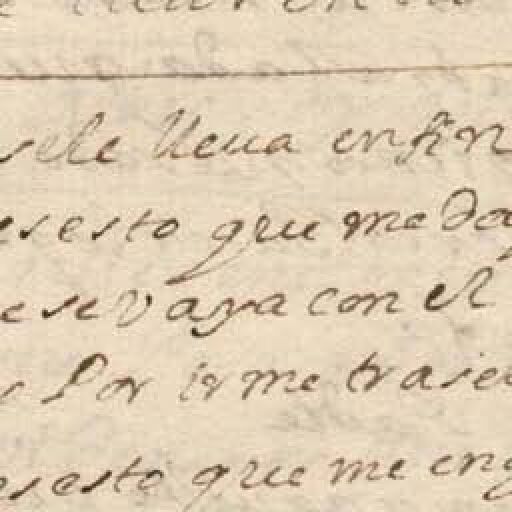 sele lleua enfin
es esto que me da
e se vaya con el
s Por irme tras e
es esto que me eng